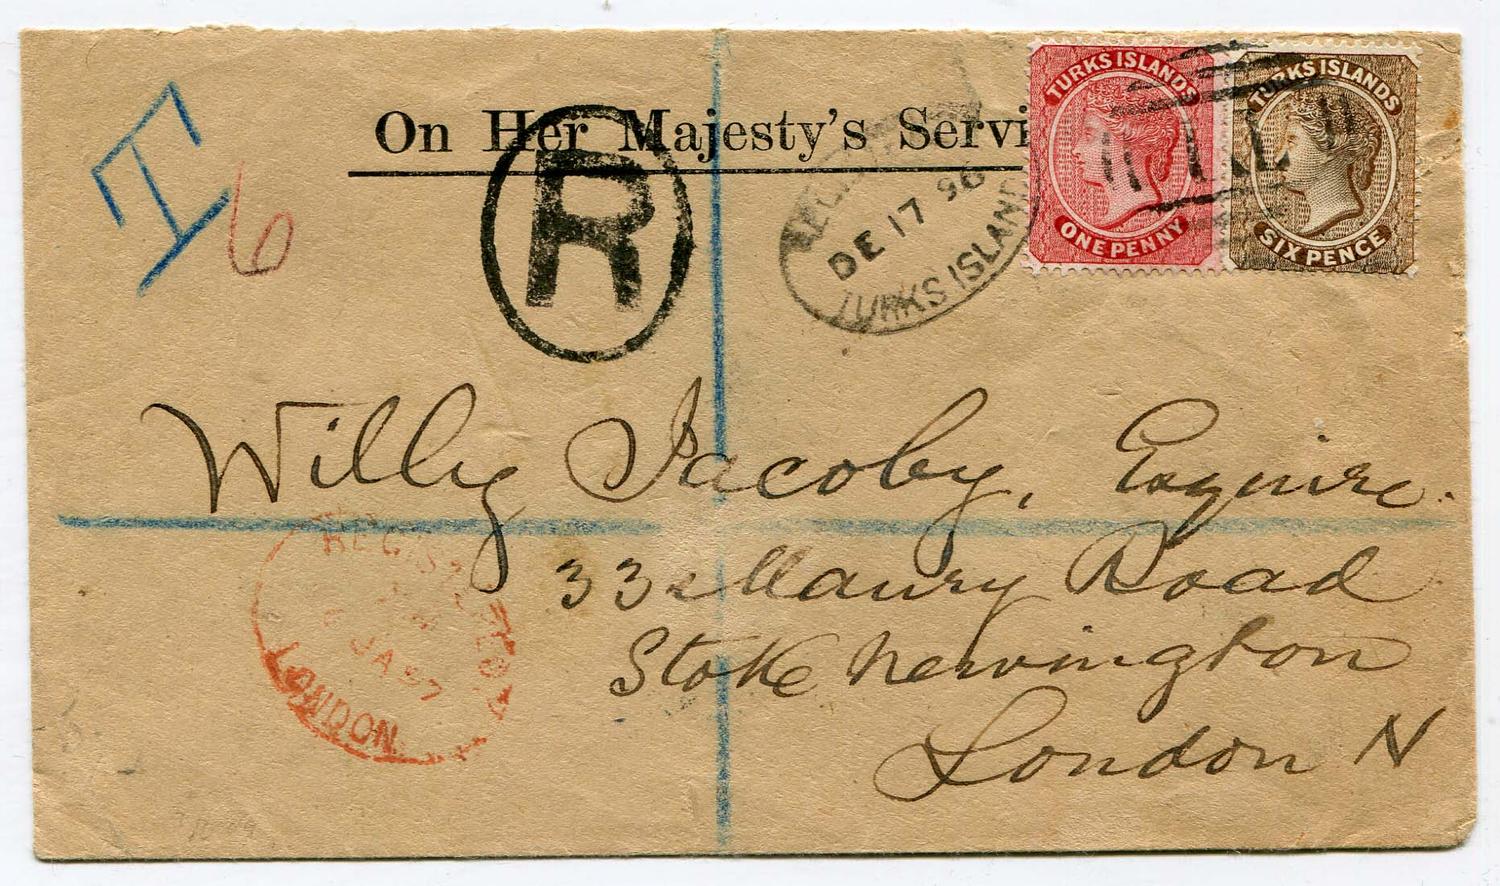 On Her Majesty's Servi
TURKS ISLANDS
ONE PENNY
TURKS ISLANDS
SIX PENCE
R
6
DE 17 96
TURKS ISLAND
Willy Jacoby, Esquire.
33 Maury Road
Stoke Newington
London N
REGISTERED
JA 97
LONDON